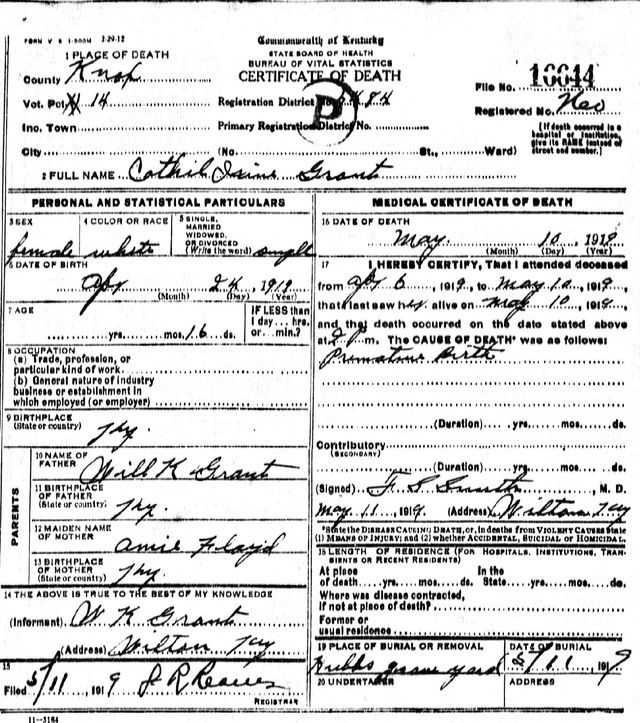 FORM V S 1-500M 7-29-12
Commonwealth of Kentucky
STATE BOARD OF HEALTH
BUREAU OF VITAL STATISTICS
CERTIFICATE OF DEATH
1 PLACE OF DEATH
County Knox
File No. 16644
Vot. Pct. 14
Registration District No.
Registered No.
P
Inc. Town
Primary Registration District No.
[If death occurred in a hospital or institution, give its NAME instead of street and number.]
City (No. St., Ward)
2 FULL NAME Grant
PERSONAL AND STATISTICAL PARTICULARS
3 SEX
female
4 COLOR OR RACE
white
5 SINGLE, MARRIED WIDOWED, OR DIVORCED (Write the word) single
6 DATE OF BIRTH
Apr 24, 1919
(Month) (Day) (Year)
7 AGE
yrs. mos. 16 ds.
IF LESS than 1 day... hrs. or... min.?
8 OCCUPATION
(a) Trade, profession, or particular kind of work
(b) General nature of industry business or establishment in which employed (or employer)
9 BIRTHPLACE
(State or country) Ky.
PARENTS
10 NAME OF FATHER Will K Grant
11 BIRTHPLACE OF FATHER (State or country) Ky.
12 MAIDEN NAME OF MOTHER Amie Floyd
13 BIRTHPLACE OF MOTHER (State or country) Ky.
14 THE ABOVE IS TRUE TO THE BEST OF MY KNOWLEDGE
(Informant) W K Grant
(Address) Wilton Ky
15
Filed 5/11 1919 J R
REGISTRAR
11-3184
MEDICAL CERTIFICATE OF DEATH
16 DATE OF DEATH
May 10, 1919
(Month) (Day) (Year)
17 I HEREBY CERTIFY, That I attended deceased
from Apr 6, 1919, to May 10, 1919,
that I last saw her alive on May 10, 1919,
and that death occurred on the date stated above
at m. The CAUSE OF DEATH* was as follows:
Premature Birth
(Duration) yrs. mos. ds.
Contributory
(SECONDARY)
(Duration) yrs. mos. ds.
(Signed) F S Smith, M. D.
May 11, 1919 (Address) Wilton Ky
*State the DISEASE CAUSING DEATH, or, in deaths from VIOLENT CAUSES State (1) MEANS OF INJURY; and (2) whether ACCIDENTAL, SUICIDAL or HOMICIDAL.
18 LENGTH OF RESIDENCE (FOR HOSPITALS, INSTITUTIONS, TRANSIENTS OR RECENT RESIDENTS)
At place of death yrs. mos. ds. In the State yrs. mos. ds.
Where was disease contracted, if not at place of death?
Former or usual residence
19 PLACE OF BURIAL OR REMOVAL
Hubbs grave yard
DATE OF BURIAL
5/11 1919
20 UNDERTAKER
ADDRESS